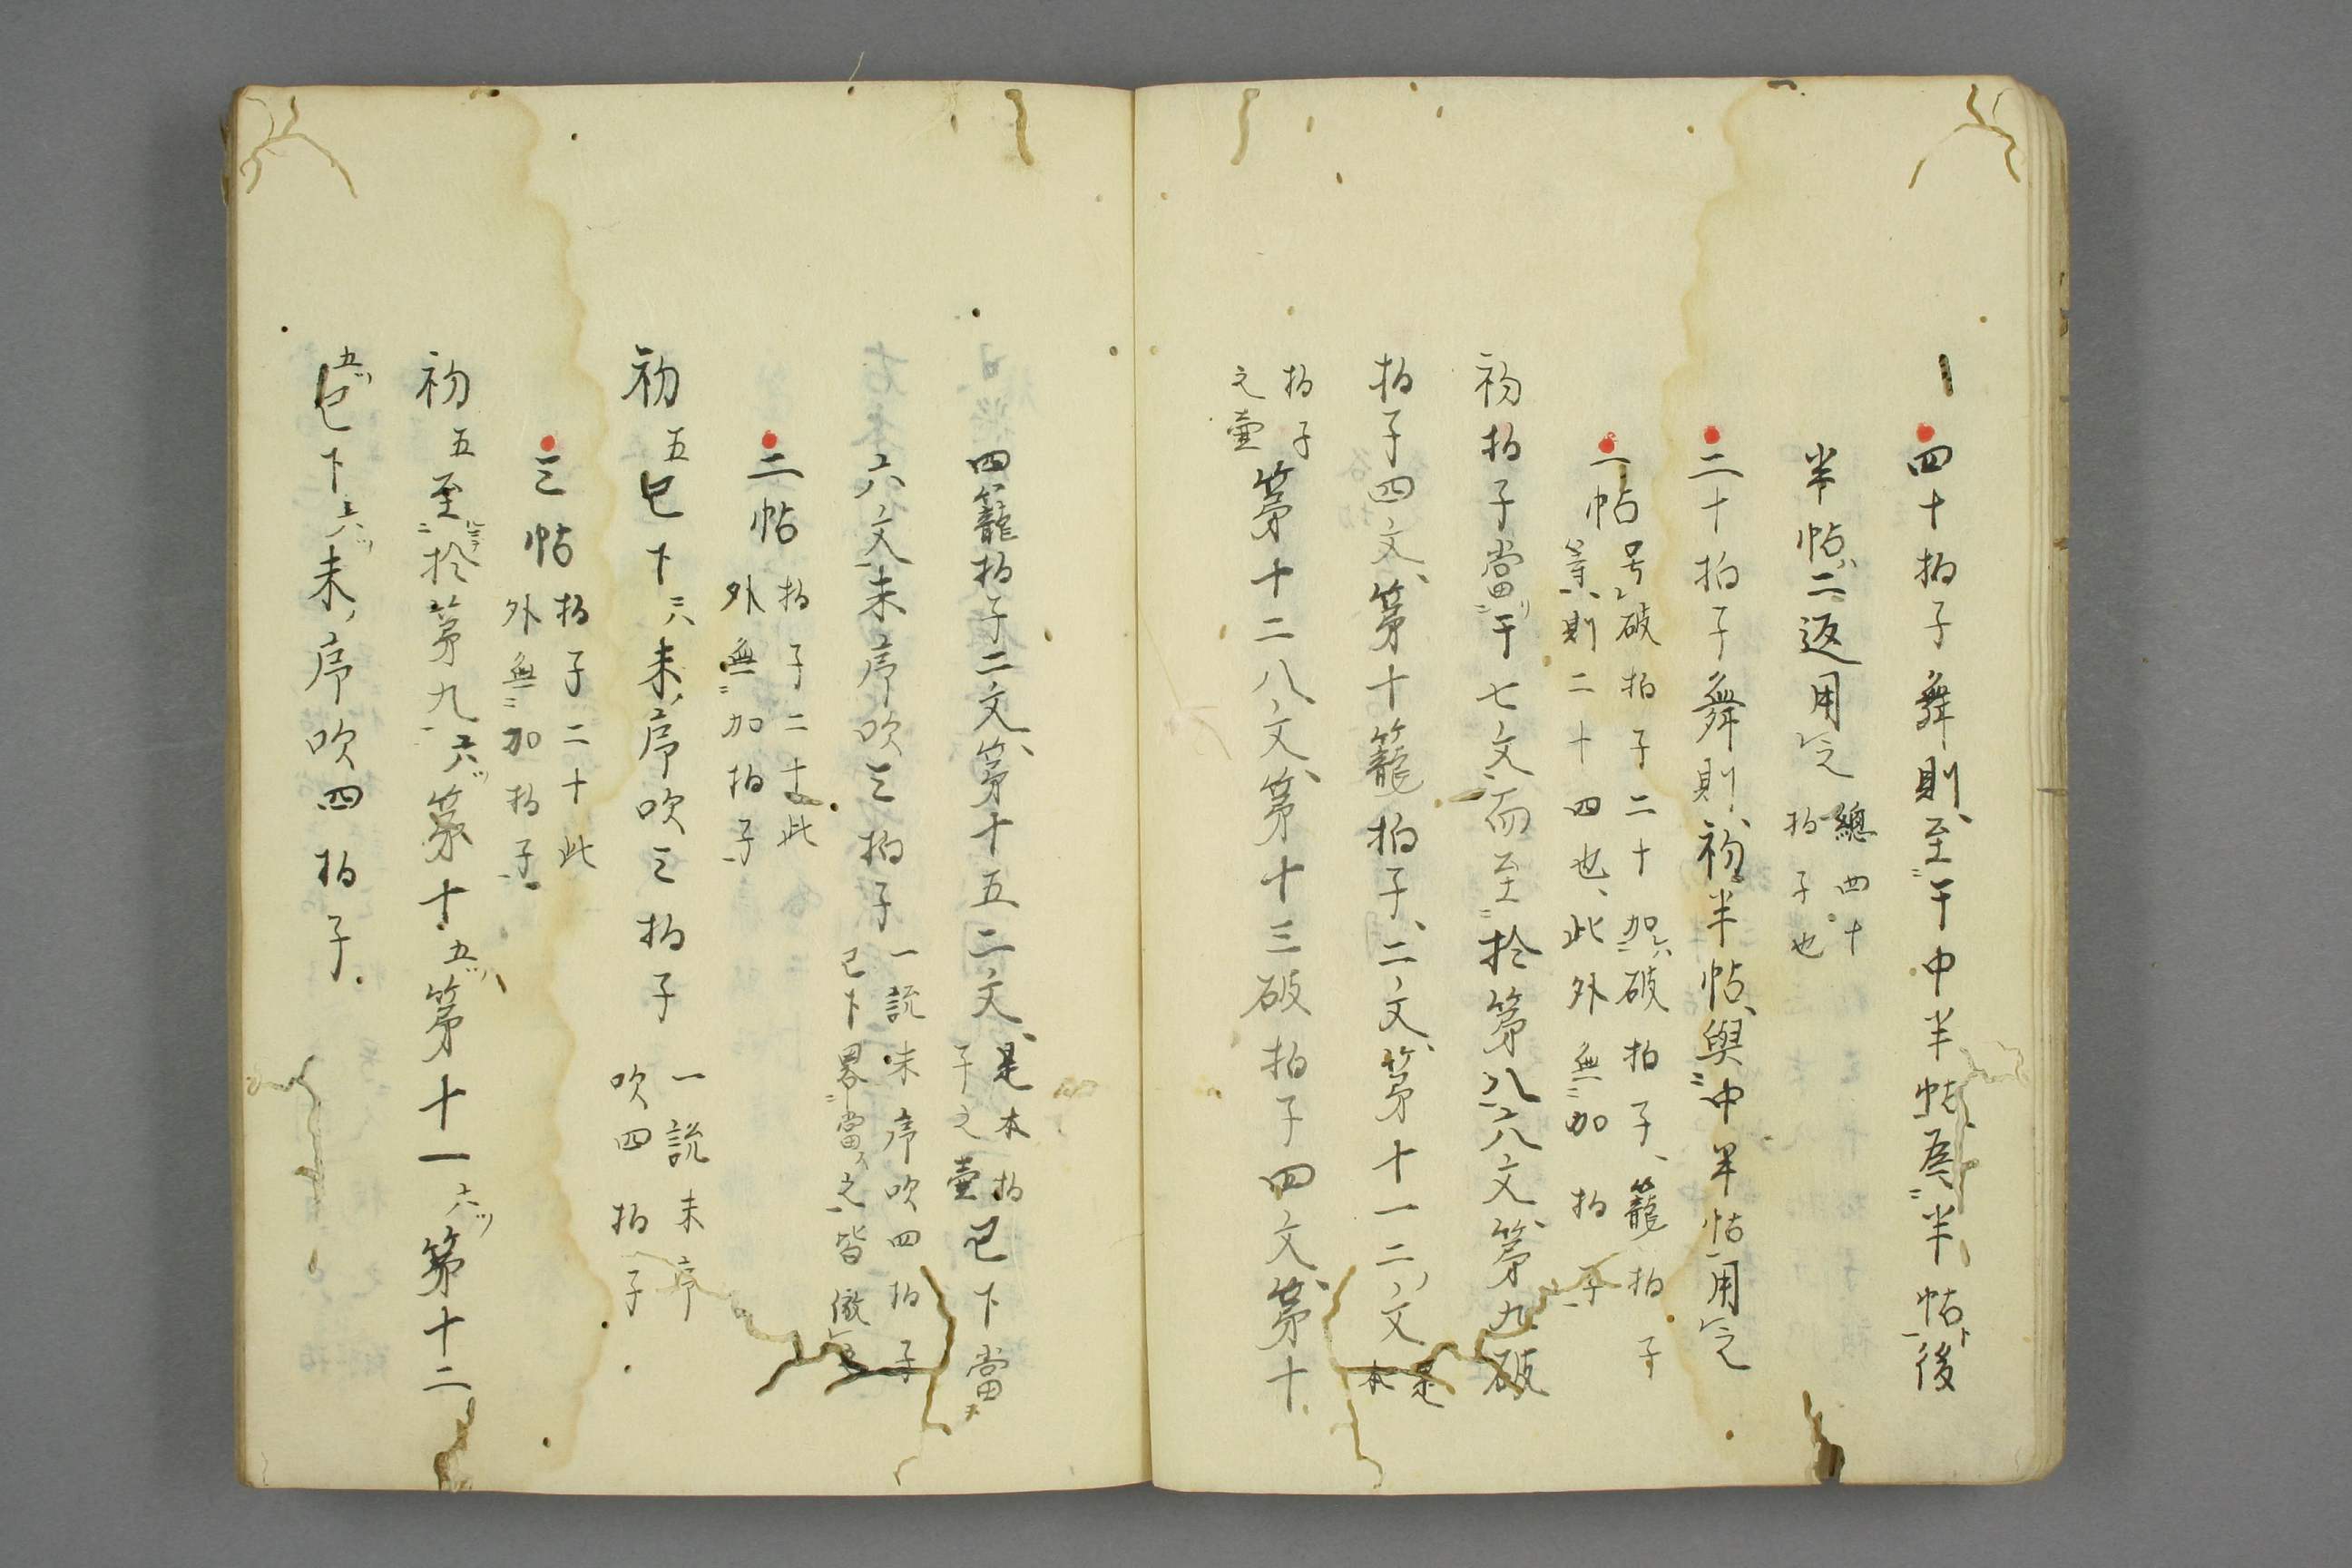 四十拍子舞則至于中半帖爲半帖後
半帖二返用之 總四十拍子也
二十拍子舞則初半帖與中半帖用之
一帖 号破拍子二十加六破拍子、籠拍子等則二十四也、此外無加拍子
初拍子當于七文而至於第八六文第九破
拍子四文第十籠拍子二文第十一二文 是本
拍子之壷 第十二八文第十三破拍子四文第十
四籠拍子二文第十五二文 是本拍子之壷 已下當
六文末序吹三拍子 一説末序吹四拍子已下畧當之皆倣
二帖 拍子二十此外無加拍子
初五已下三六末序吹三拍子 一説末序吹四拍子
三帖 拍子二十此外無加拍子
初五至於第九六ツ第十五ツ第十一六ツ第十二
五ツ已下六ツ末序吹四拍子